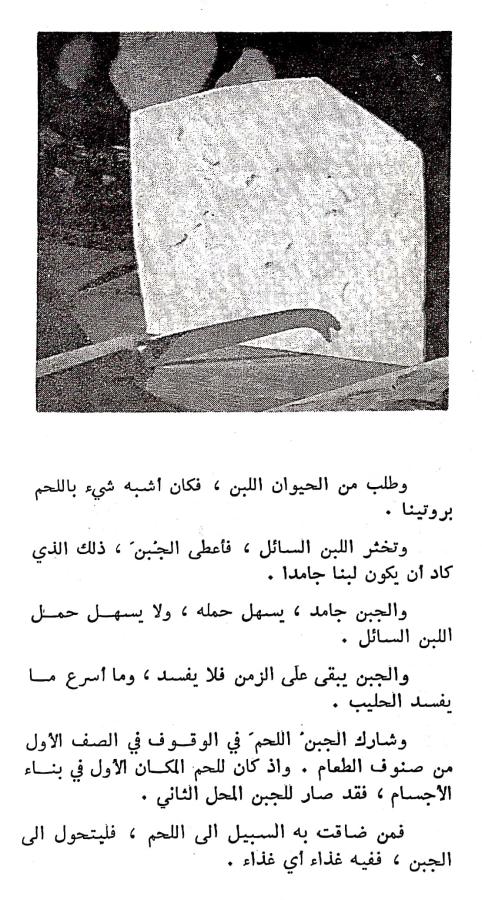 وطلب من الحيوان اللبن ، فكان أشبه شيء باللحم
بروتينا .
وتخثر اللبن السائل ، فأعطى الجُبنَ ، ذلك الذي
كاد أن يكون لبنا جامدا .
والجبن جامد ، يسهل حمله ، ولا يسهــل حمــل
اللبن السائل .
والجبن يبقى على الزمن فلا يفسد ، وما أسرع مــا
يفسد الحليب .
وشارك الجبنُ اللحمَ في الوقــوف في الصف الأول
من صنوف الطعام . واذ كان للحم المكــان الأول في بنــاء
الأجسام ، فقد صار للجبن المحل الثاني .
فمن ضاقت به السبيل الى اللحم ، فليتحول الى
الجبن ، ففيه غذاء أي غذاء .